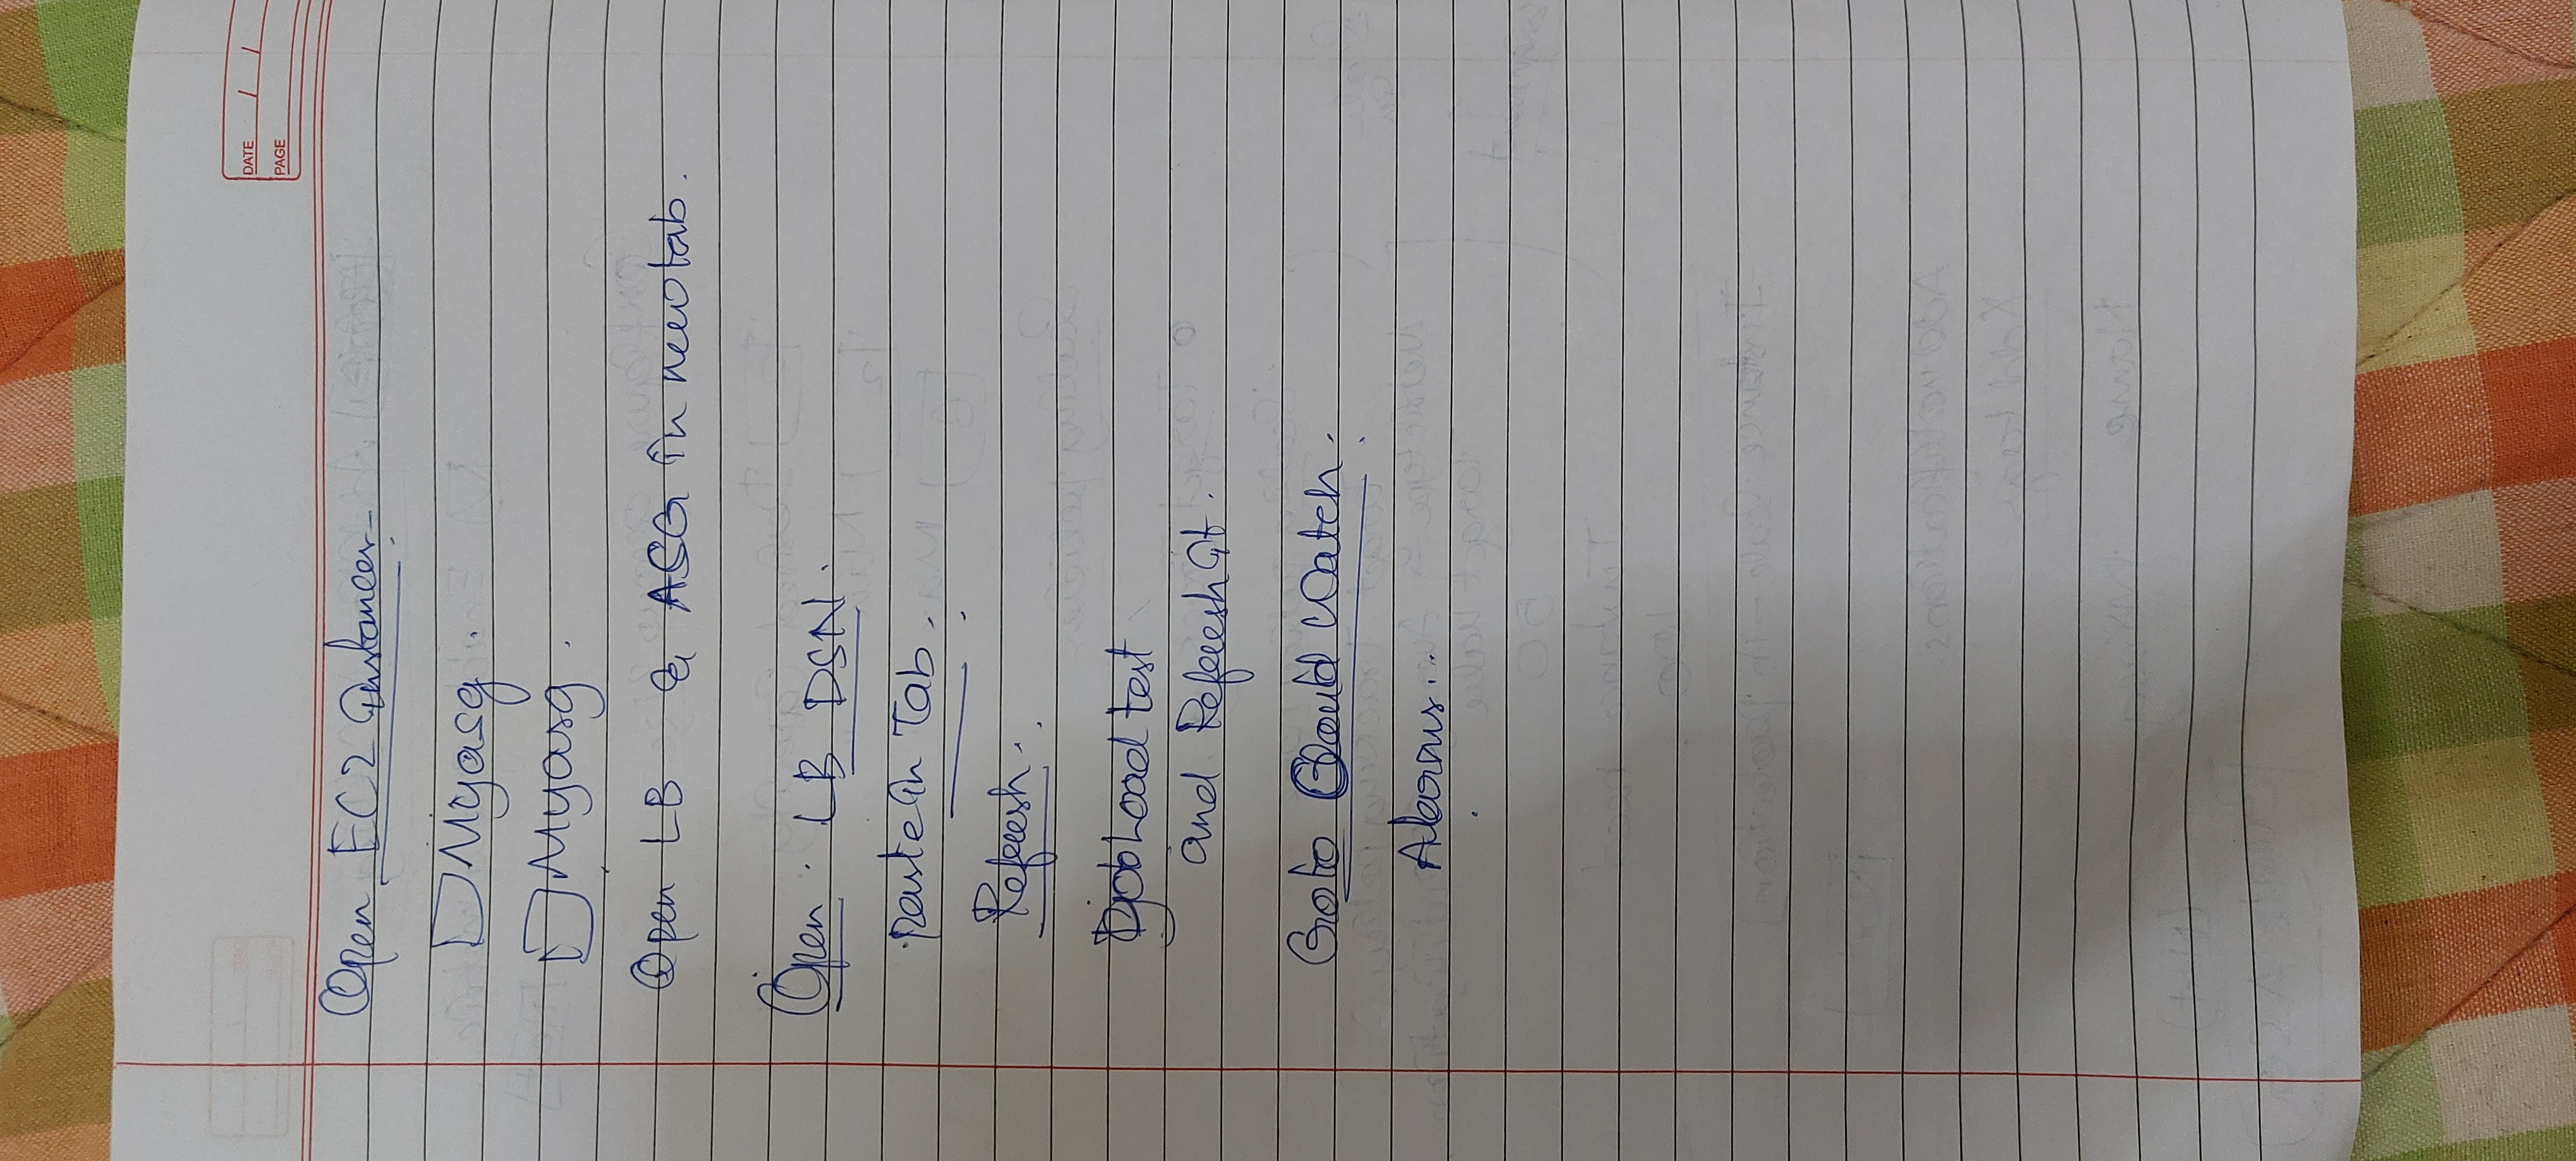 DATE / /
PAGE
Open EC2 Instances
Myasg.
Myasg.
Open LB & ASG in new tab.
Open. LB DSN.
paste in Tab.
Refresh.
Load test
and Refresh it.
Goto Clould Watch.
Alarms..